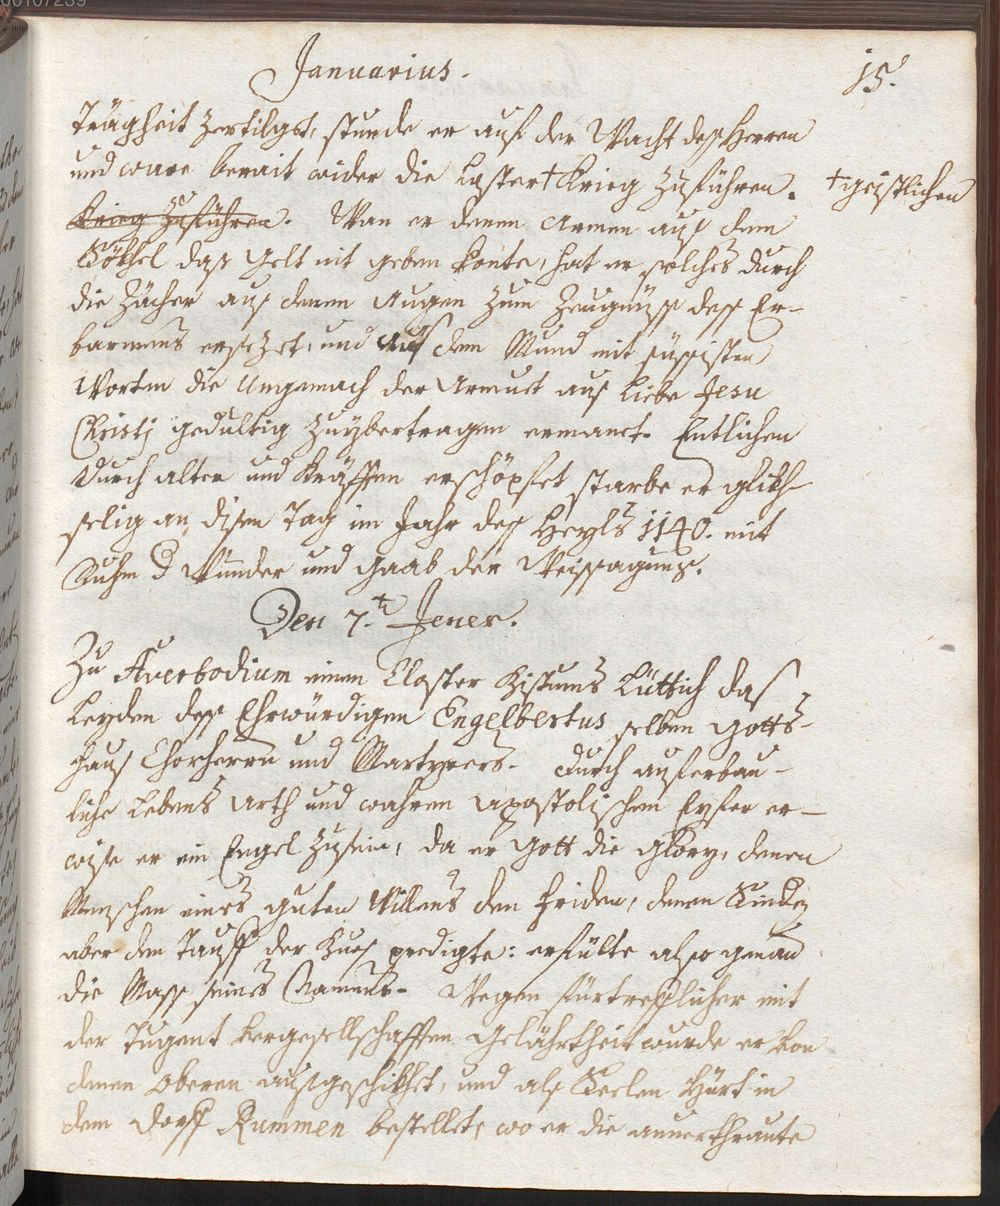 00107239
Januarius.
15.
Trägheit zertilgt, stunde er auf der Wacht deß Herren
und ware berait wider die Laster † Krieg zuführen.
† geistlichen
Krieg zuführen. Wan er denen Armen auß dem
Söckhel daß Gelt nit geben konte, hat er solches durch
die Zächer auß denen Augen zum Zeugnuß deß Er-
barmens ersezet, und auß dem Mund mit süssisten
Worten die Ungemach der Armuet auß Liebe Jesu
Christi gedultig zuybertragen ermanet. Entlichen
durch alter und Kräfften erschöpfet starbe er glikh-
selig an disem Tag im Jahr deß Heyls 1140. mit
Ruhm d Wunder und Gaab der Weissagung.
Den 7.ᵗ Jener.
Zu Averbodium einem Closter Bistums Lüttich daß
Leyden deß Ehrwürdigen Engelbertus selben Gotts-
hauß Chorherrn und Martyrers. Durch auferbau-
liche Lebens Arth und wahren apostolischen Eyfer er-
wise er ein Engel zusein, da er Gott die Glory, denen
Menschen eines guten Willens den Friden, denen
aber den Tauff der Bueß predigte: erfülte also genau
die Maß seines Namens. Wegen fürtrefflicher mit
der Tugent vergesellschafften Gelährtheit wurde er von
denen Oberen außgeschikhet, und alß Seelen Hürt in
dem Dorff Rummen bestellet, wo er die anvertraute